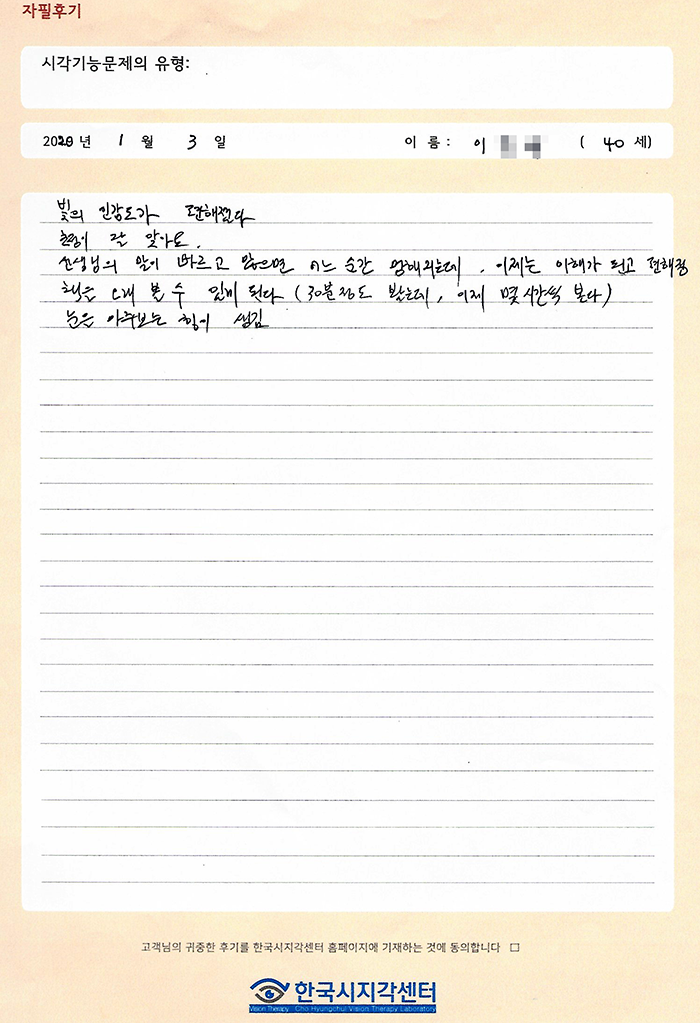 자필후기
시각기능문제의 유형:
2020 년 1 월 3 일 이 름 : 이 ( 40 세)
빛의 민감도가 둔해졌다
초점이 잘 맞아요.
선생님의 말이 빠르고 많으면 어느 순간 멍해지는데, 이제는 이해가 되고 편해짐
책을 오래 볼 수 있게 됐다 (30분정도 봤는데, 이제 몇시간씩 본다)
눈을 마주보는 힘이 생김
고객님의 귀중한 후기를 한국시지각센터 홈페이지에 기재하는 것에 동의합니다 □
한국시지각센터
Vision Therapy Cho Hyungchul Vision Therapy Laboratory